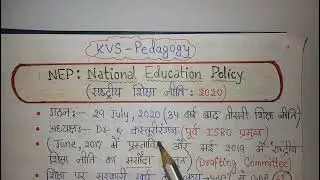 KVS - Pedagogy
NEP: National Education Policy
(राष्ट्रीय शिक्षा नीति : 2020)
गठन:- 29 July, 2020 (34 वर्ष बाद तीसरी शिक्षा नीति)
अध्यक्ष:- Dr. K कस्तूरीरंगन (पूर्व ISRO प्रमुख)
(June, 2017 में प्रस्तावित और मई 2019 में राष्ट्रीय
शिक्षा नीति का मसौदा (Drafting Committee)
शिक्षा पर सरकारी